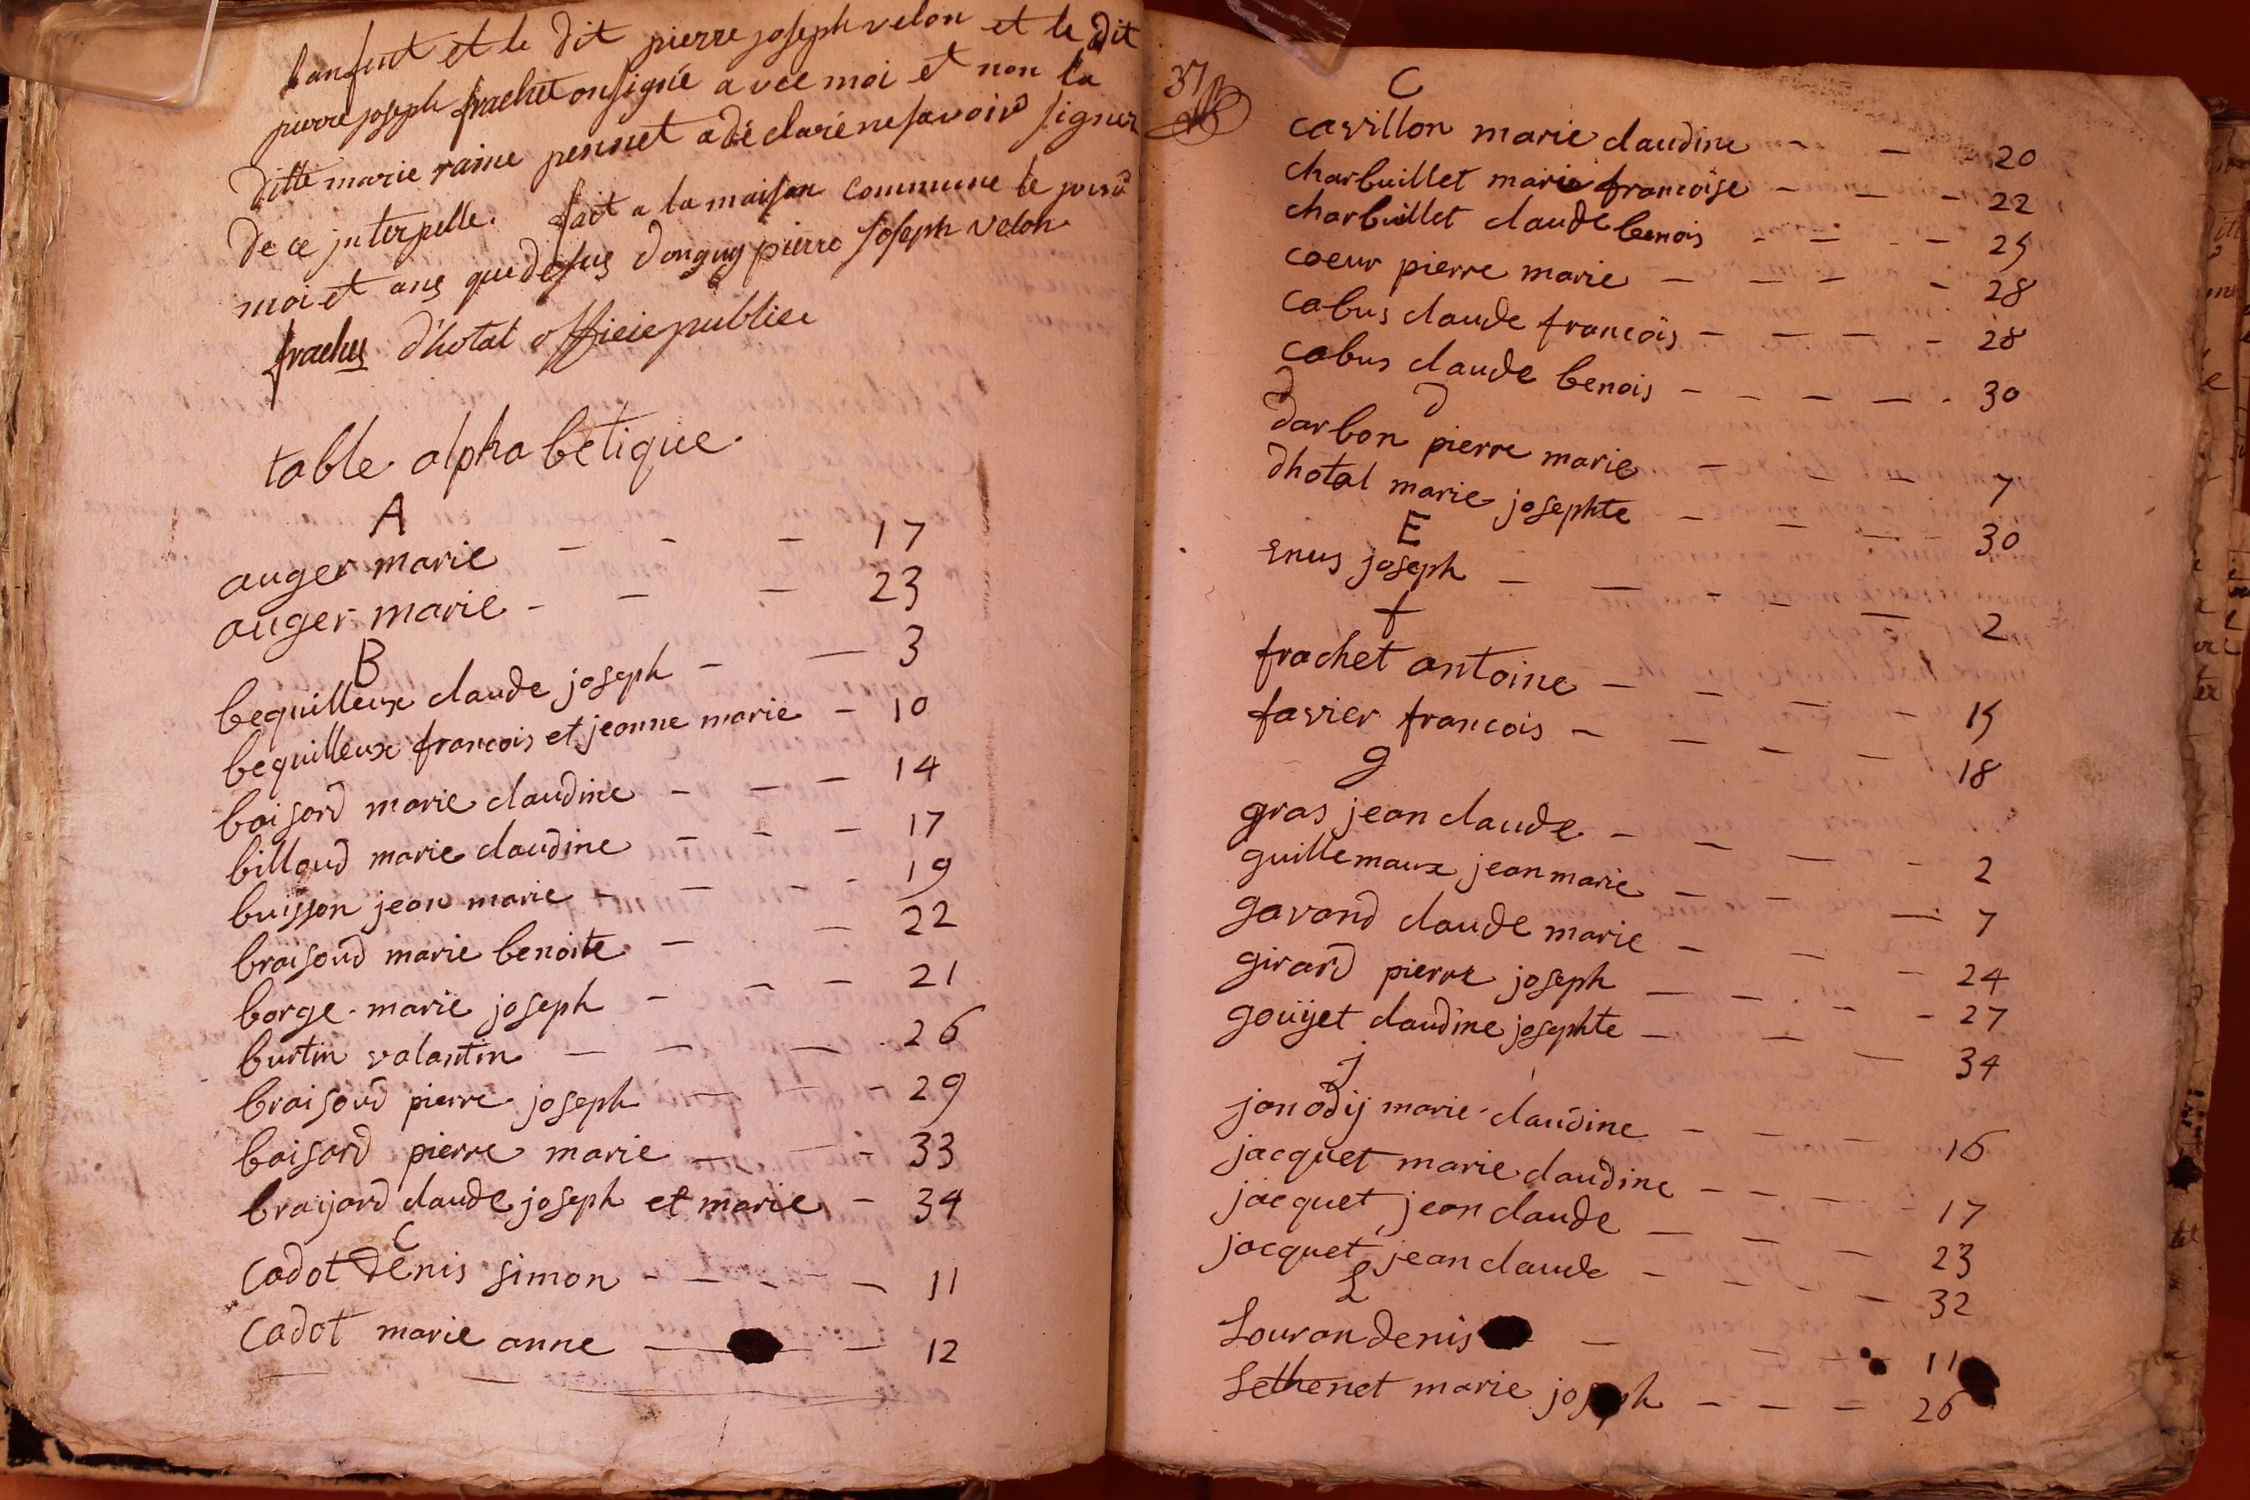 lanfent et le dit pierre joseph velon et le dit
pierre joseph frachet onsigné avec moi et non la
ditte marie raine pennet a déclaré ne savoir signer
de ce interpelle. fait a la maison commune le jours
moi et ans que desus donguy pierre joseph velon
frachet d'hotal officie publice
table alphabetique
A
auger marie - - - 17
auger marie - - - 23
B
bequilleux claude joseph - - 3
bequilleux francois et jeanne marie - 10
boisard marie claudine - - - 14
billoud marie claudine - - - 17
buisson jean marie - - - - 19
braisoud marie benoite - - 22
borge marie joseph - - - 21
burtin valantin - - - 26
braisoud pierre joseph - - - 29
boisard pierre marie - - - 33
braijard claude joseph et marie - 34
C
Cadot denis simon - - - - - 11
Cadot marie anne - - - 12
37
C
cavillon marie claudine - - - 20
charbuillet marie francoise - - - 22
charbuillet claude benois - - - - 25
coeur pierre marie - - - - 28
cabus claude francois - - - - 28
cabus claude benois - - - - - 30
d
darbon pierre marie - - - 7
dhotal marie josephte - - - - 30
E
enus joseph - - - - - 2
f
frachet antoine - - - - 15
favier francois - - - - 18
g
gras jean claude - - - - 2
guillemaux jean marie - - - 7
gavand claude marie - - - 24
girard pierre joseph - - - - 27
gouyet claudine josephte - - - 34
j
janodij marie claudine - - - 16
jacquet marie claudine - - - - 17
jacquet jean claude - - - 23
jacquet jean claude - - - - 32
L
Louran denis - - - 11
Lethenet marie joseph - - - 26